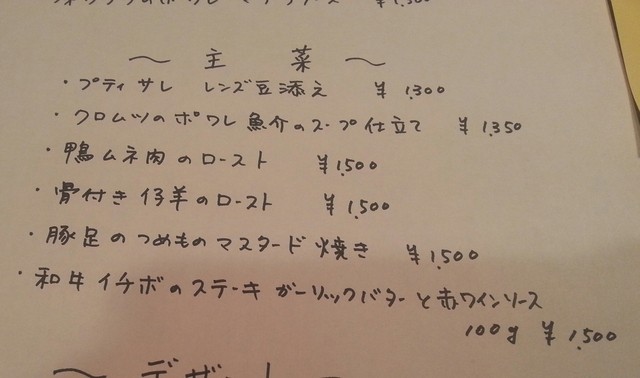 ¥1,300
〜 主 菜 〜
・プティサレ レンズ豆添え ¥1,300
・クロムツのポワレ 魚介のスープ仕立て ¥1,350
・鴨ムネ肉のロースト ¥1,500
・骨付き仔羊のロースト ¥1,500
・豚足のつめもの マスタード焼き ¥1,500
・和牛イチボのステーキ ガーリックバターと赤ワインソース
100g ¥1,500
〜 デザート 〜